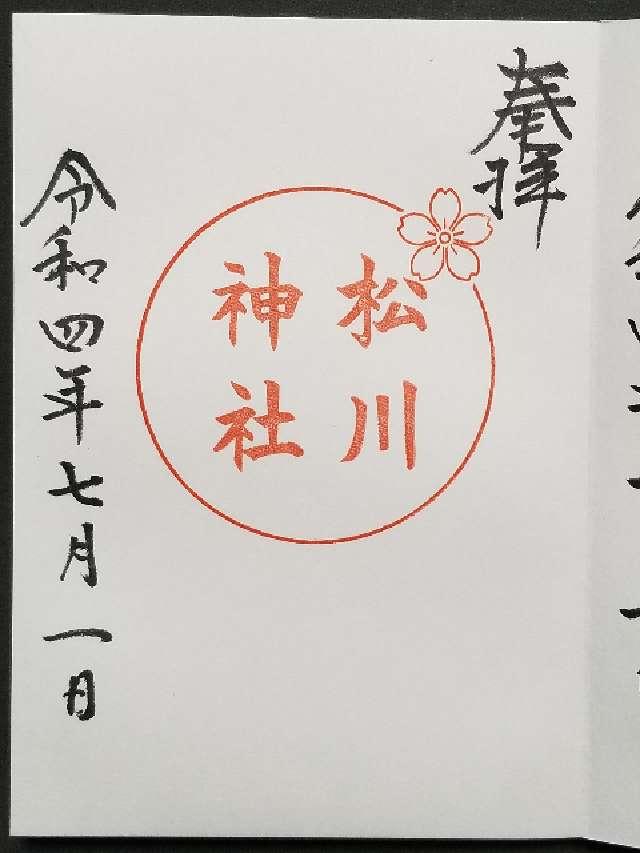 奉拝
松川
神社
令和四年七月一日